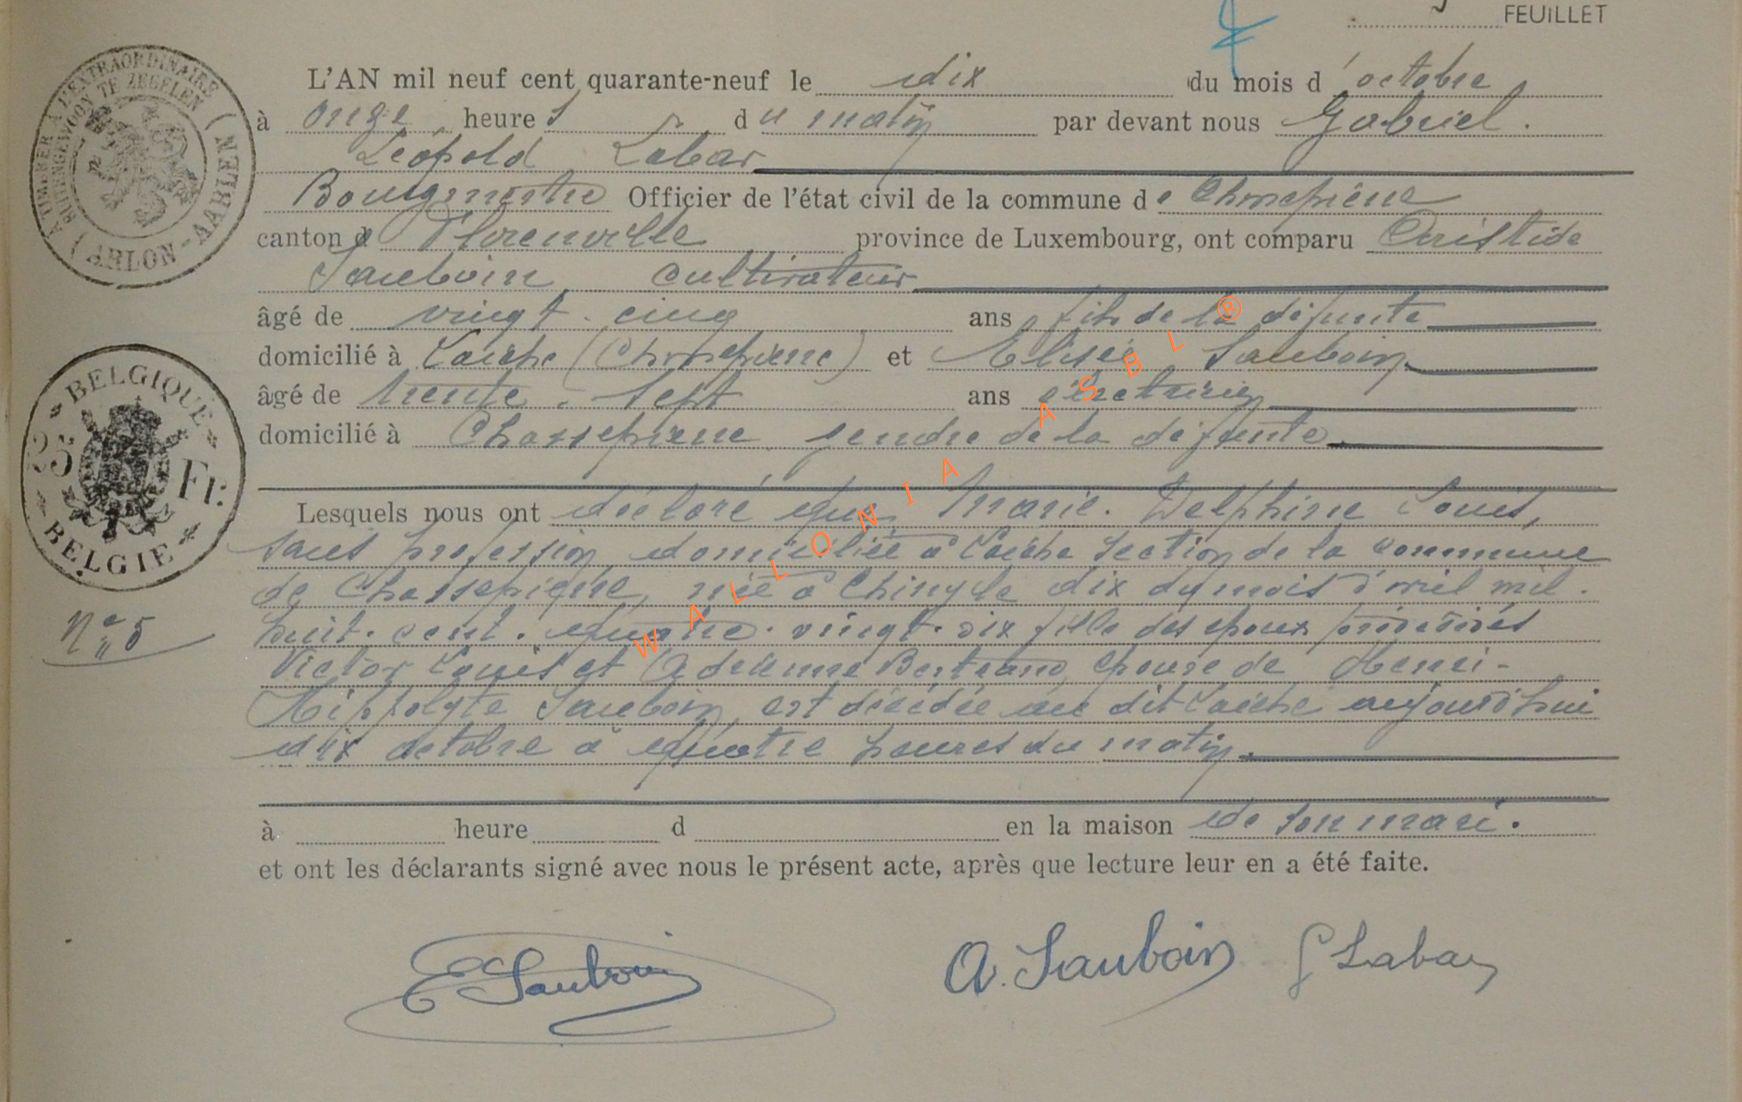 FEUILLET
L'AN mil neuf cent quarante-neuf le dix du mois d'octobre
à onze heures du matin par devant nous Gabriel
Léopold Labar
Bourgmestre Officier de l'état civil de la commune de Chassepierre
canton de Florenville province de Luxembourg, ont comparu Aristide
Sauboin cultivateur
âgé de vingt-cinq ans fils de la défunte
domicilié à Laiche (Chassepierre) et Elisée Sauboin
âgé de trente-sept ans
domicilié à Chassepierre gendre de la défunte
Lesquels nous ont déclaré que Marie-Delphine Louis,
sans profession domiciliée à Laiche section de la commune
de Chassepierre, née à Chiny le dix du mois d'avril mil-
huit-cent-quatre-vingt-dix fille des époux
Victor Louis et Adelinne Bertrand, épouse de Henri-
Hippolyte Sauboin, est décédée au dit Laiche aujourd'hui
dix octobre à quatre heures du matin.
à heure d en la maison de son mari.
et ont les déclarants signé avec nous le présent acte, après que lecture leur en a été faite.
E Sauboin A. Sauboin G Labar
N° 5
A TIMBRER A L'EXTRAORDINAIRE
BUITENGEWOON TE ZEGELEN
(ARLON-AARLEN)
BELGIQUE
25 Fr.
BELGIE
WALLONIA ASBL ®